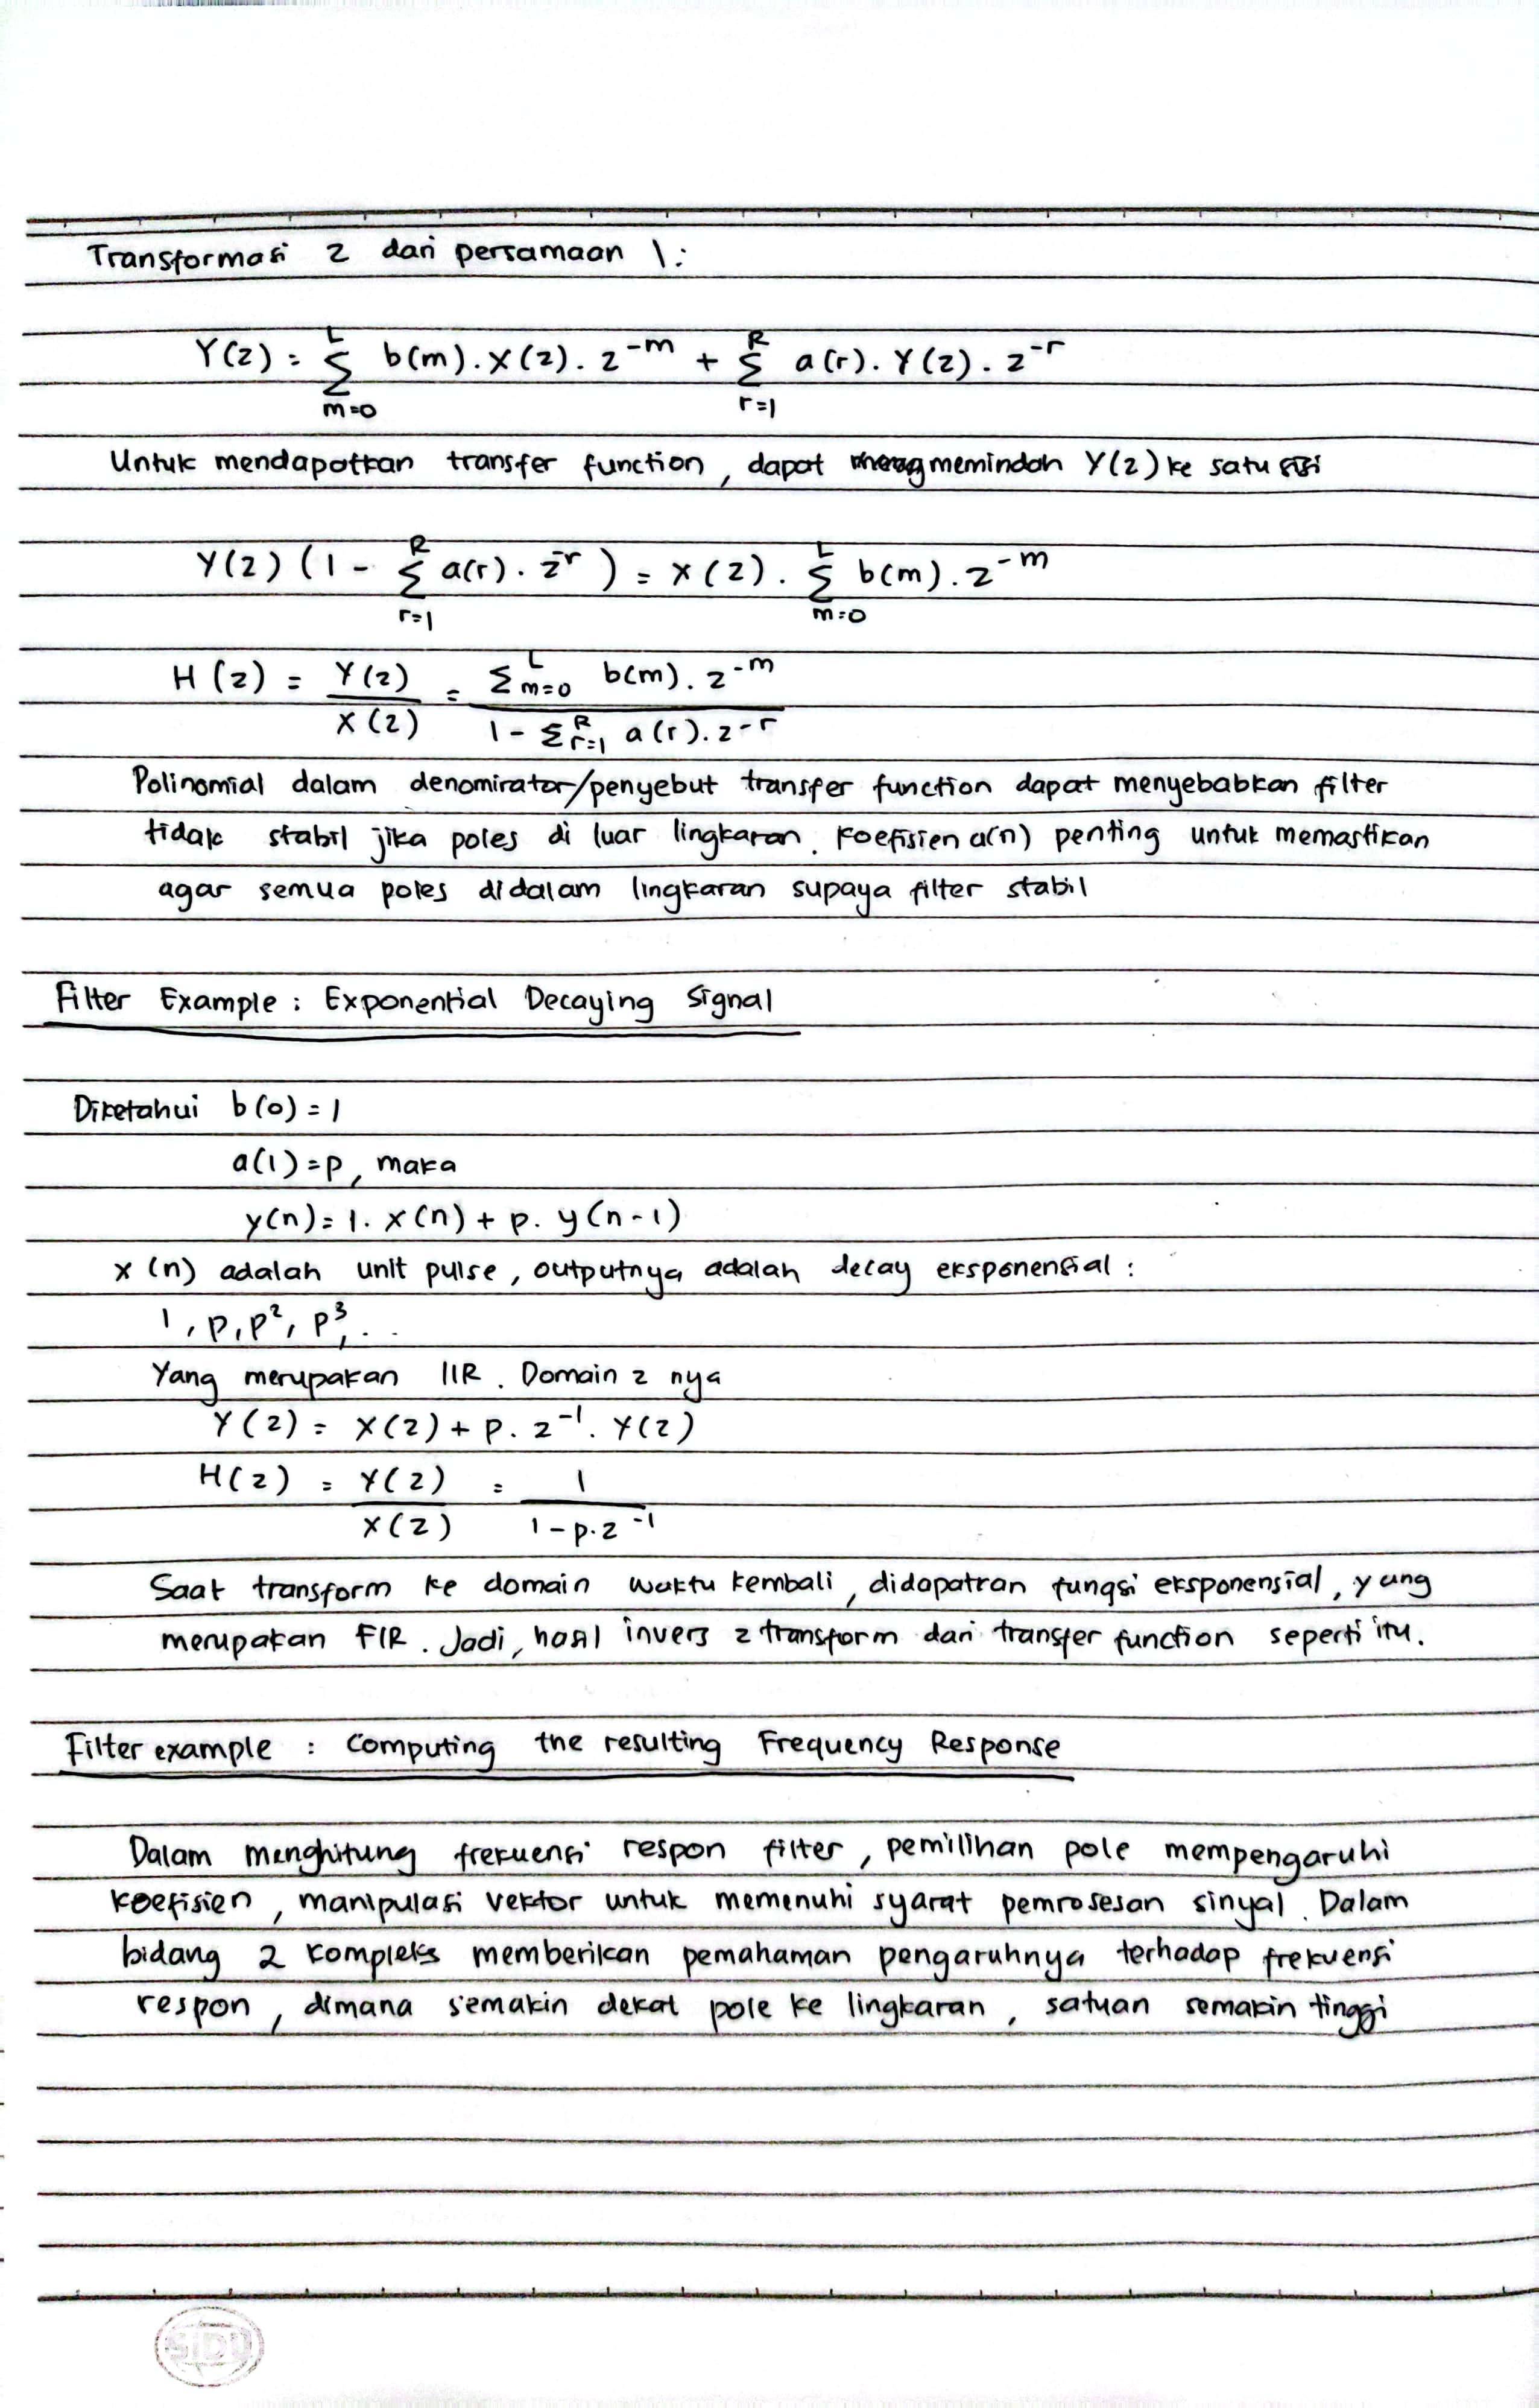 Transformasi z dari persamaan 1:
Y(z) = Σ_{m=0}^{L} b(m). X(z). z^{-m} + Σ_{r=1}^{R} a(r). Y(z). z^{-r}
Untuk mendapatkan transfer function, dapat memindah Y(z) ke satu sisi
Y(z) (1 - Σ_{r=1}^{R} a(r). z^{-r}) = X(z). Σ_{m=0}^{L} b(m). z^{-m}
H(z) = Y(z)/X(z) = (Σ_{m=0}^{L} b(m). z^{-m})/(1 - Σ_{r=1}^{R} a(r). z^{-r})
Polinomial dalam denomirator/penyebut transfer function dapat menyebabkan filter
tidak stabil jika poles di luar lingkaran. Koefisien a(n) penting untuk memastikan
agar semua poles didalam lingkaran supaya filter stabil
Filter Example : Exponential Decaying Signal
Diketahui b(0) = 1
a(1) = p, maka
y(n) = 1. x(n) + p. y(n-1)
x(n) adalah unit pulse, outputnya adalah decay eksponensial :
1, p, p², p³, ..
Yang merupakan IIR. Domain z nya
Y(z) = X(z) + p. z^{-1}. Y(z)
H(z) = Y(z)/X(z) = 1/(1 - p.z^{-1})
Saat transform ke domain waktu kembali, didapatkan fungsi eksponensial, yang
merupakan FIR. Jadi, hasil invers z transform dari transfer function seperti itu.
Filter example : Computing the resulting Frequency Response
Dalam menghitung frekuensi respon filter, pemilihan pole mempengaruhi
koefisien, manipulasi vektor untuk memenuhi syarat pemrosesan sinyal. Dalam
bidang z kompleks memberikan pemahaman pengaruhnya terhadap frekuensi
respon, dimana semakin dekat pole ke lingkaran, satuan semakin tinggi
SiDU